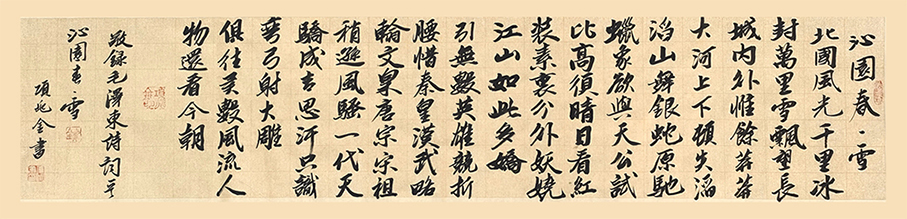 沁園春·雪
北國風光千里冰
封萬里雪飄望長
城内外惟餘莽莽
大河上下頓失滔
滔山舞銀蛇原馳
蠟象欲與天公試
比高須晴日看紅
裝素裹分外妖嬈
江山如此多嬌
引無數英雄競折
腰惜秦皇漢武略
輸文采唐宗宋祖
稍遜風騷一代天
驕成吉思汗只識
彎弓射大雕
俱往矣數風流人
物還看今朝
敬錄毛澤東詩詞
沁園春·雪
項兆金書